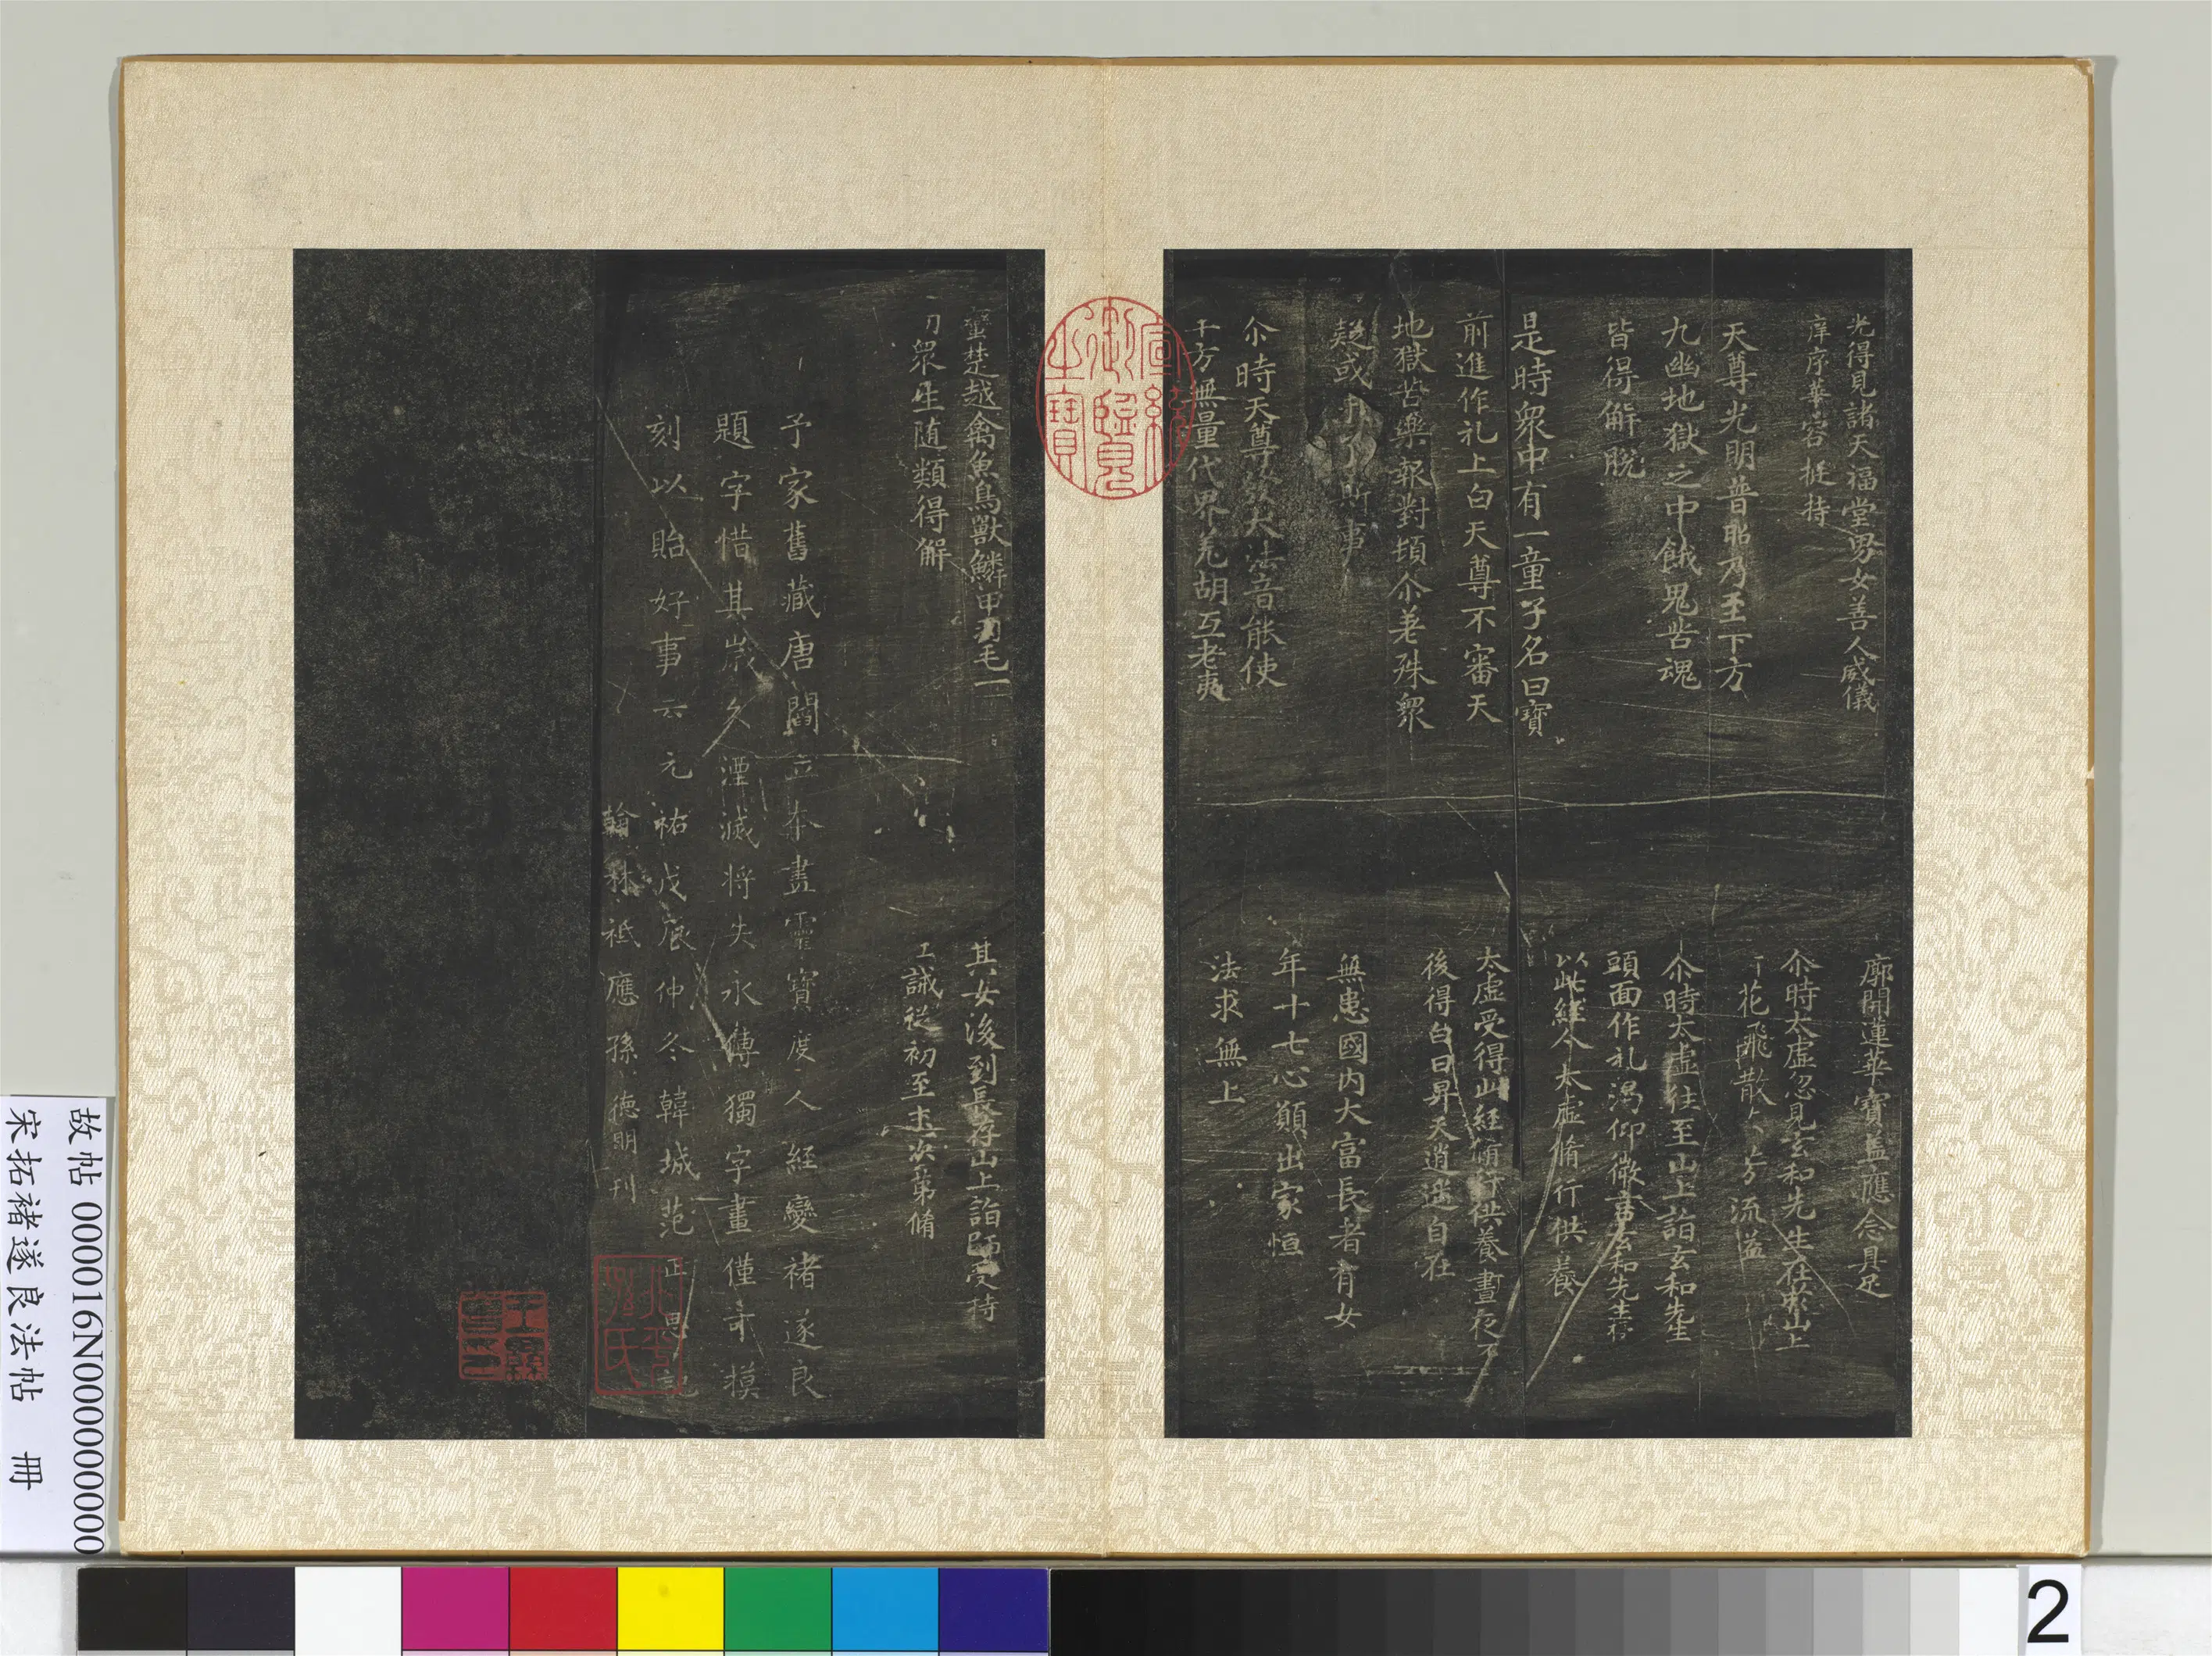 光得見諸天福堂男女善人威儀
庠序華容挺持
天尊光明普照乃至下方
九幽地獄之中餓鬼苦魂
皆得解脫
是時衆中有一童子名曰寶
前進作礼上白天尊不審天
地獄苦樂報對頓尒差殊衆
疑或
尒時天尊 大法音能使
十方無量代界羌胡互老夷
廓開蓮華寶蓋應念具足
尒時太虛忽見玄和先生在 山上
花飛散 芳流溢
尒時太虛往至山上詣玄和先生
頭面作礼渴仰微言玄和先生
以此經令太虛脩行供養
太虛受得此經脩行供養晝夜不
後得白日昇天逍遥自在
無患國内大富長者有女
年十七心願出家恒
法求無上
蠻楚越禽魚鳥獸鱗甲羽毛一
切衆生随類得解
其女後到長存山上詣師受持
誡従初至末次第脩
予家舊藏唐閻立本畫靈寶度人經變褚遂良
題字惜其歲久湮滅將失永傳獨字畫僅可摸
刻以貽好事云元祐戊辰仲冬韓城范正思記
翰林祗應孫德明刊
宣統御覽之寶
故帖 000016N000000000
宋拓褚遂良法帖 冊
2